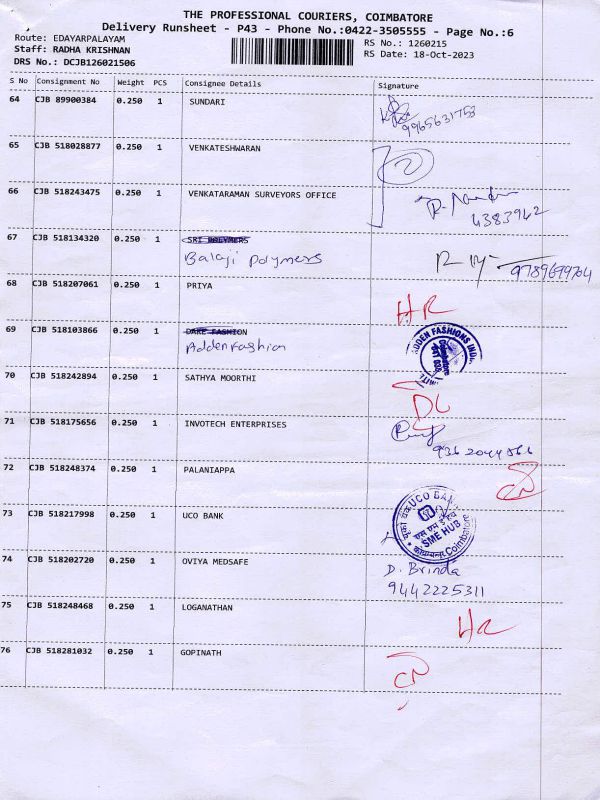 THE PROFESSIONAL COURIERS, COIMBATORE
Delivery Runsheet - P43 - Phone No.:0422-3505555 - Page No.:6
Route: EDAYARPALAYAM
Staff: RADHA KRISHNAN
DRS No.: DCJB126021506
RS No.: 1260215
RS Date: 18-Oct-2023
S No Consignment No Weight PCS Consignee Details Signature
64 CJB 89900384 0.250 1 SUNDARI
9965631753
65 CJB 518028877 0.250 1 VENKATESHWARAN
66 CJB 518243475 0.250 1 VENKATARAMAN SURVEYORS OFFICE
4383942
67 CJB 518134320 0.250 1 SRI POLYMERS
Balaji polymers
9789699704
68 CJB 518207061 0.250 1 PRIYA
HR
69 CJB 518103866 0.250 1 DARE FASHION
Adden Fashion
ADDEN FASHIONS INDIA
70 CJB 518242894 0.250 1 SATHYA MOORTHI
DL
71 CJB 518175656 0.250 1 INVOTECH ENTERPRISES
72 CJB 518248374 0.250 1 PALANIAPPA
CN
73 CJB 518217998 0.250 1 UCO BANK
UCO BANK
SME HUB
Coimbatore
74 CJB 518202720 0.250 1 OVIYA MEDSAFE
D. Brinda
9442225311
75 CJB 518248468 0.250 1 LOGANATHAN
HR
76 CJB 518281032 0.250 1 GOPINATH
CN